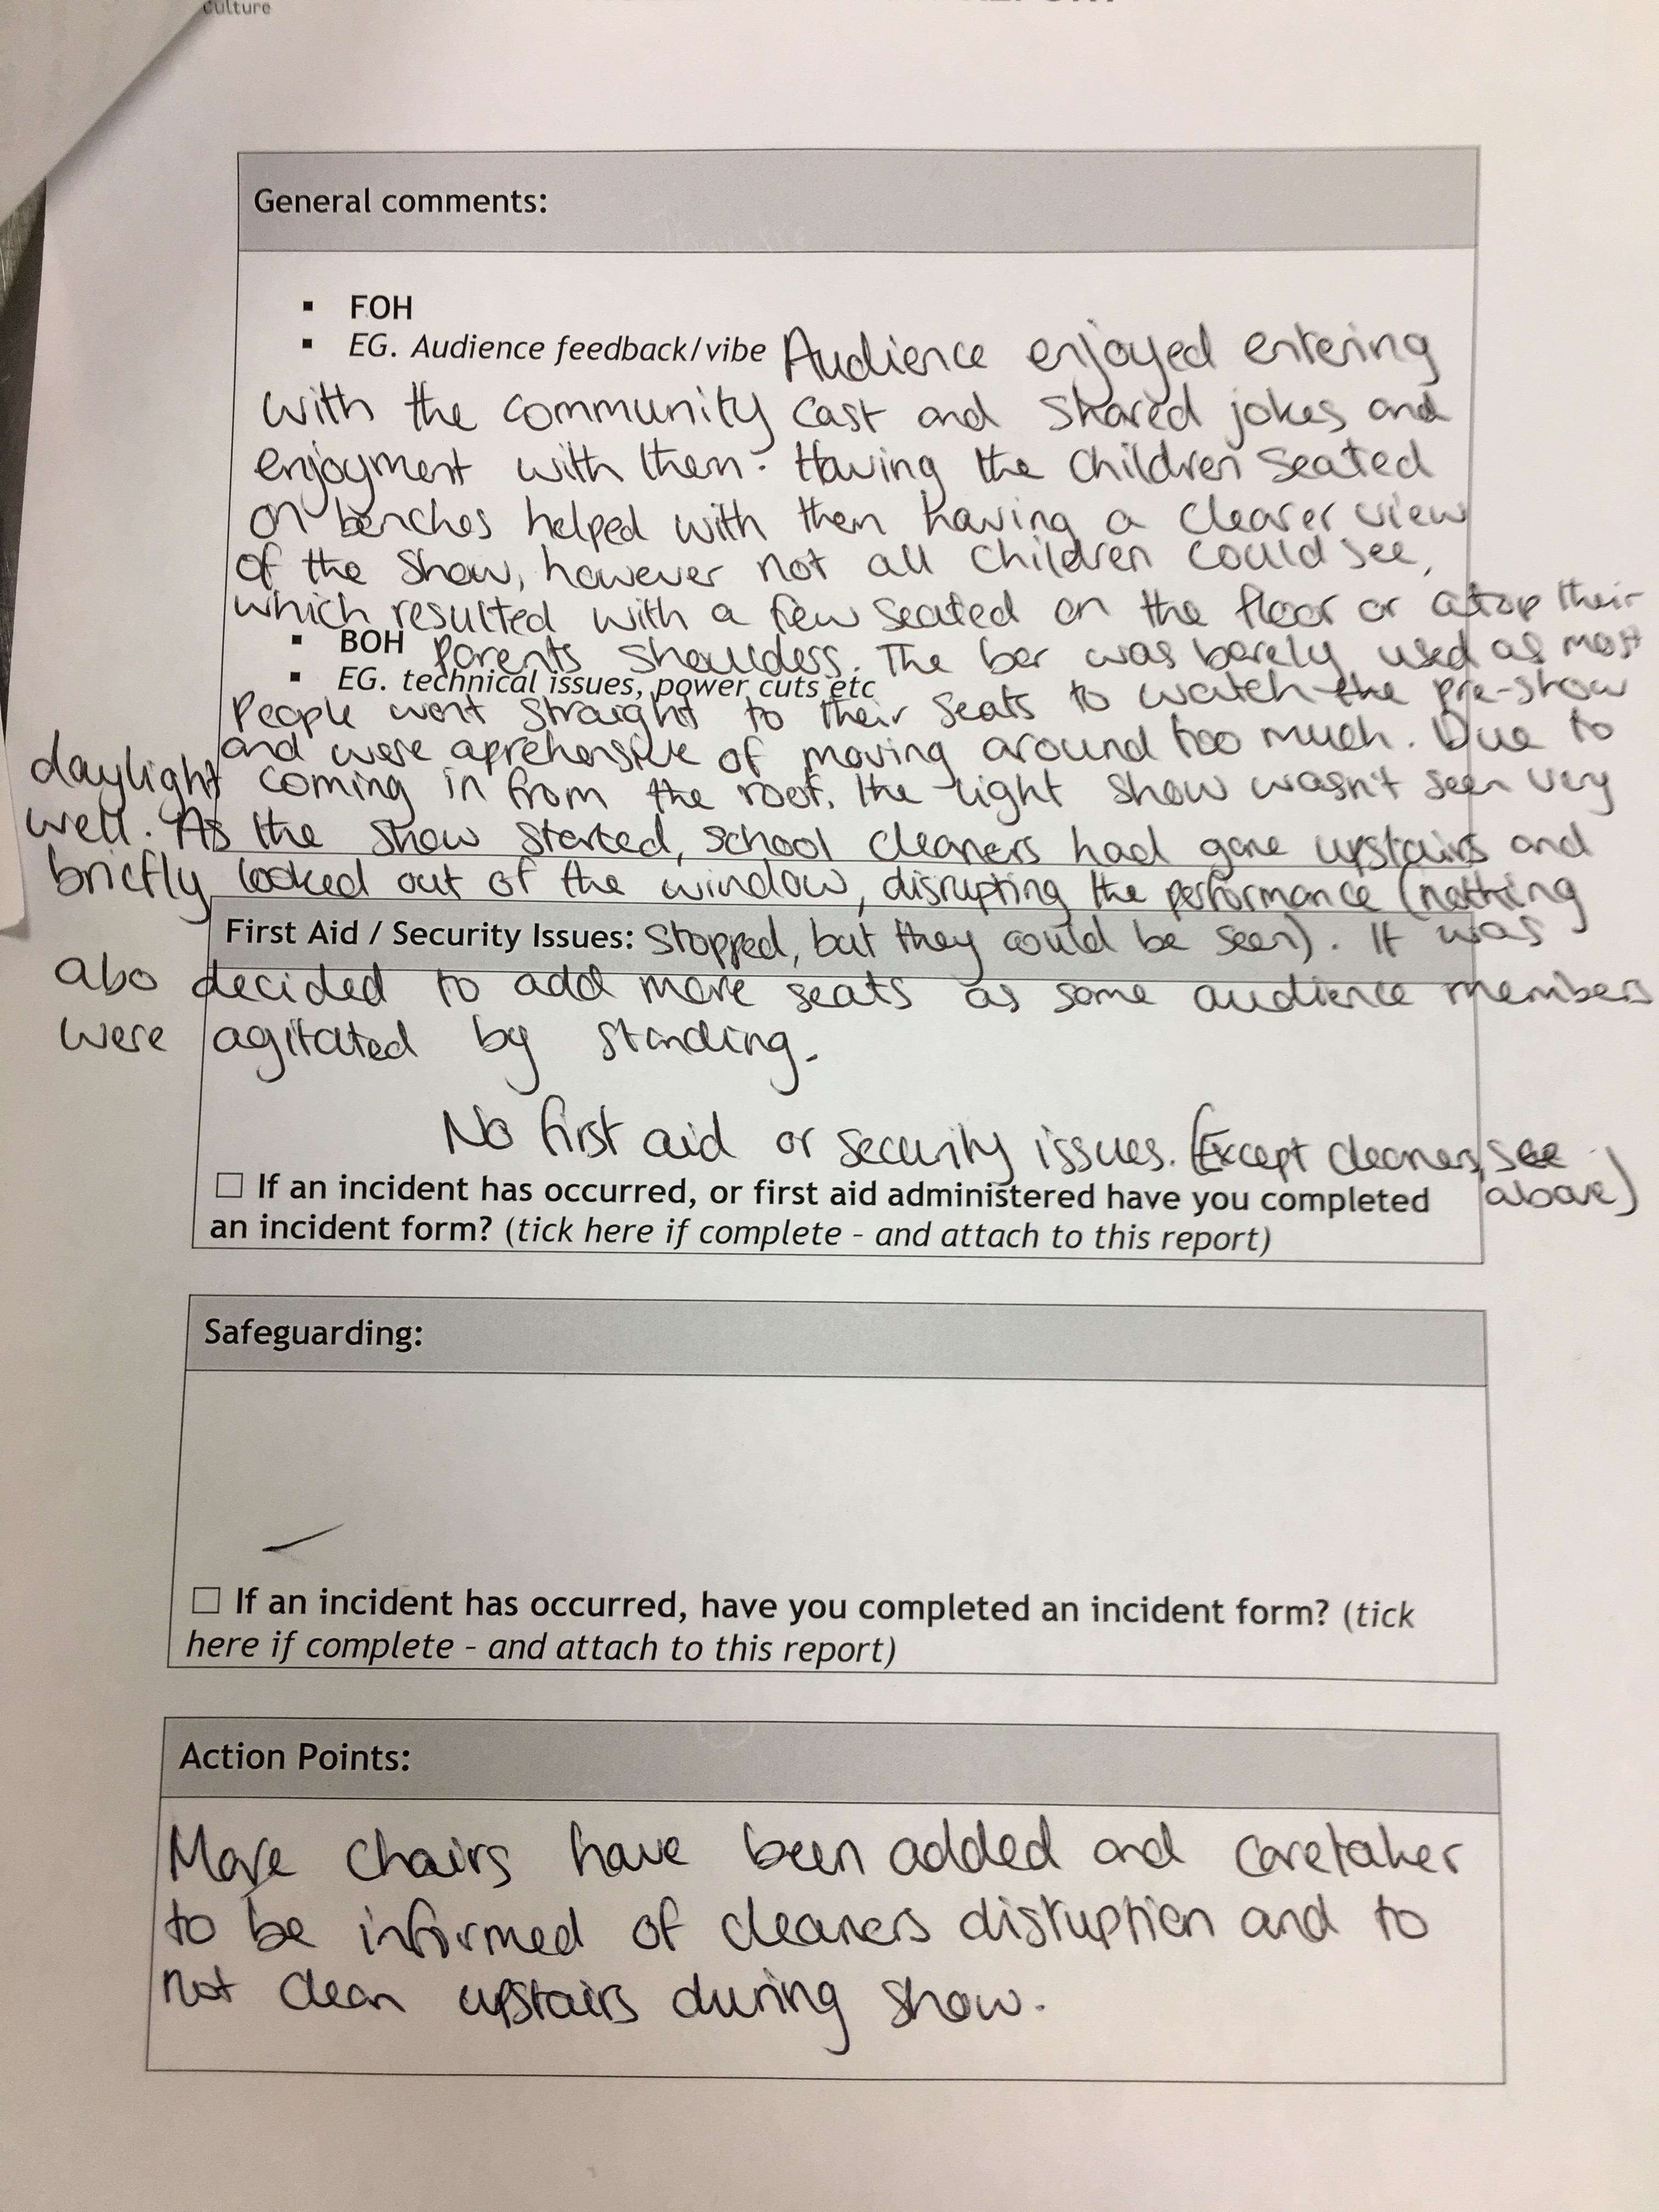 culture
REPORT
General comments:
▪ FOH
▪ EG. Audience feedback/vibe Audience enjoyed entering
with the community cast and shared jokes and
enjoyment with them. Having the children seated
on benches helped with them having a clearer view
of the show, however not all children could see,
which resulted with a few seated on the floor or atop their
▪ BOH parents shoulders. The bar was barely used as most
▪ EG. technical issues, power cuts etc
people went straight to their seats to watch the pre-show
and were aprehensive of moving around too much. Due to
daylight coming in from the roof, the light show wasn't seen very
well. As the show started, school cleaners had gone upstairs and
briefly looked out of the window, disrupting the performance (nothing
First Aid / Security Issues: stopped, but they could be seen). It was
also decided to add more seats as some audience members
were agitated by standing.
No first aid or security issues. (Except cleaners, see
above)
☐ If an incident has occurred, or first aid administered have you completed
an incident form? (tick here if complete - and attach to this report)
Safeguarding:
☐ If an incident has occurred, have you completed an incident form? (tick
here if complete - and attach to this report)
Action Points:
More chairs have been added and caretaker
to be informed of cleaners disruption and to
not clean upstairs during show.